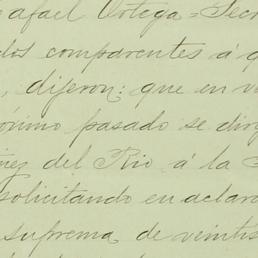 afael Ortega = Secr
dos comparentes á q
, dijeron: que en v
óximo pasado se dir
ñez del Rio á la
solicitando en aclara
suprema de veintis